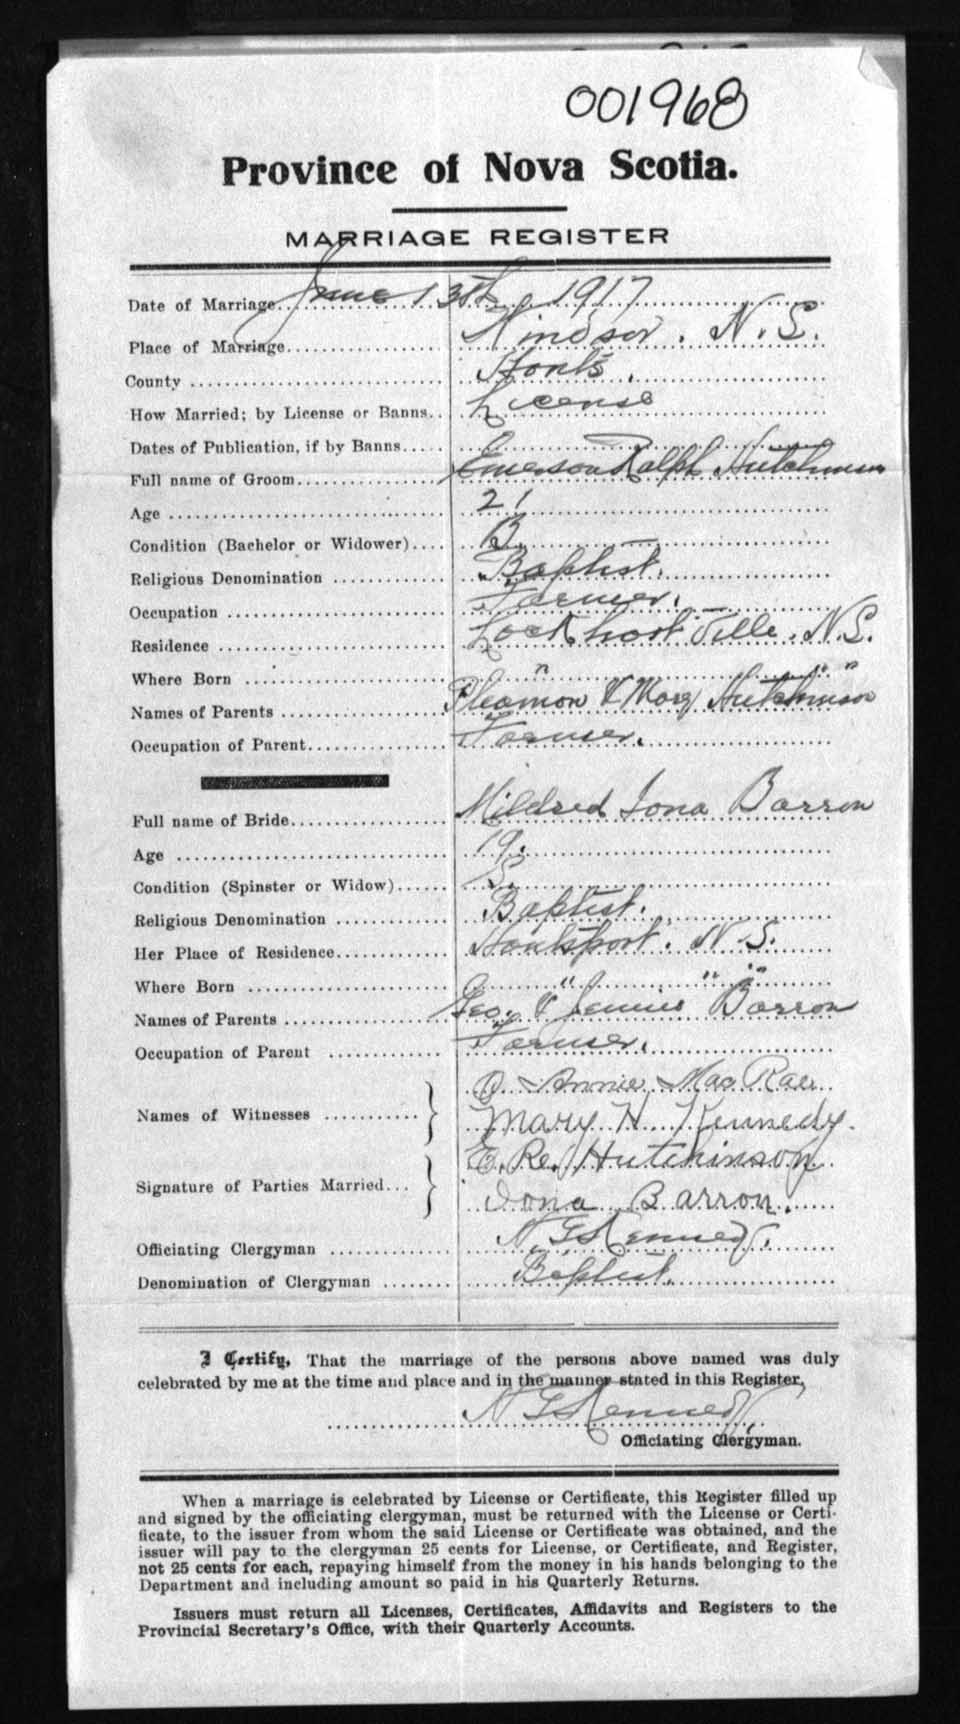 001968
Province of Nova Scotia.
MARRIAGE REGISTER
Date of Marriage June 13th, 1917
Place of Marriage Windsor. N.S.
County Hants.
How Married; by License or Banns License
Dates of Publication, if by Banns
Full name of Groom Emerson Ralph Hutchinson
Age 21
Condition (Bachelor or Widower) B.
Religious Denomination Baptist.
Occupation Farmer.
Residence Lockhartville. N.S.
Where Born " " "
Names of Parents & Mary Hutchinson
Occupation of Parent Farmer.
Full name of Bride Mildred Iona Barron
Age 19.
Condition (Spinster or Widow) S.
Religious Denomination Baptist.
Her Place of Residence Hantsport. N.S.
Where Born " " "
Names of Parents Geo. & Jennie Barron
Occupation of Parent Farmer.
Names of Witnesses Annie MacRae
Mary H. Kennedy.
Signature of Parties Married E. R. Hutchinson
Iona Barron.
Officiating Clergyman Kennedy.
Denomination of Clergyman Baptist.
I Certify, That the marriage of the persons above named was duly
celebrated by me at the time and place and in the manner stated in this Register,
Kennedy
Officiating Clergyman.
When a marriage is celebrated by License or Certificate, this Register filled up
and signed by the officiating clergyman, must be returned with the License or Certi-
ficate, to the issuer from whom the said License or Certificate was obtained, and the
issuer will pay to the clergyman 25 cents for License, or Certificate, and Register,
not 25 cents for each, repaying himself from the money in his hands belonging to the
Department and including amount so paid in his Quarterly Returns.
Issuers must return all Licenses, Certificates, Affidavits and Registers to the
Provincial Secretary's Office, with their Quarterly Accounts.